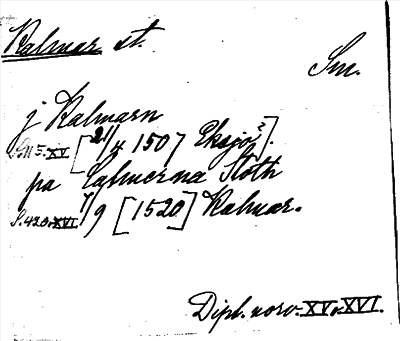 Kalmar st.
Sm.
j Kalmarn
S. 115. XV. [21/4 1507 Eksjö?].
pa Calmerna Sloth
S. 420. XVI. 7/9 [1520] Kalmar.
Dipl. norv. XV o. XVI.